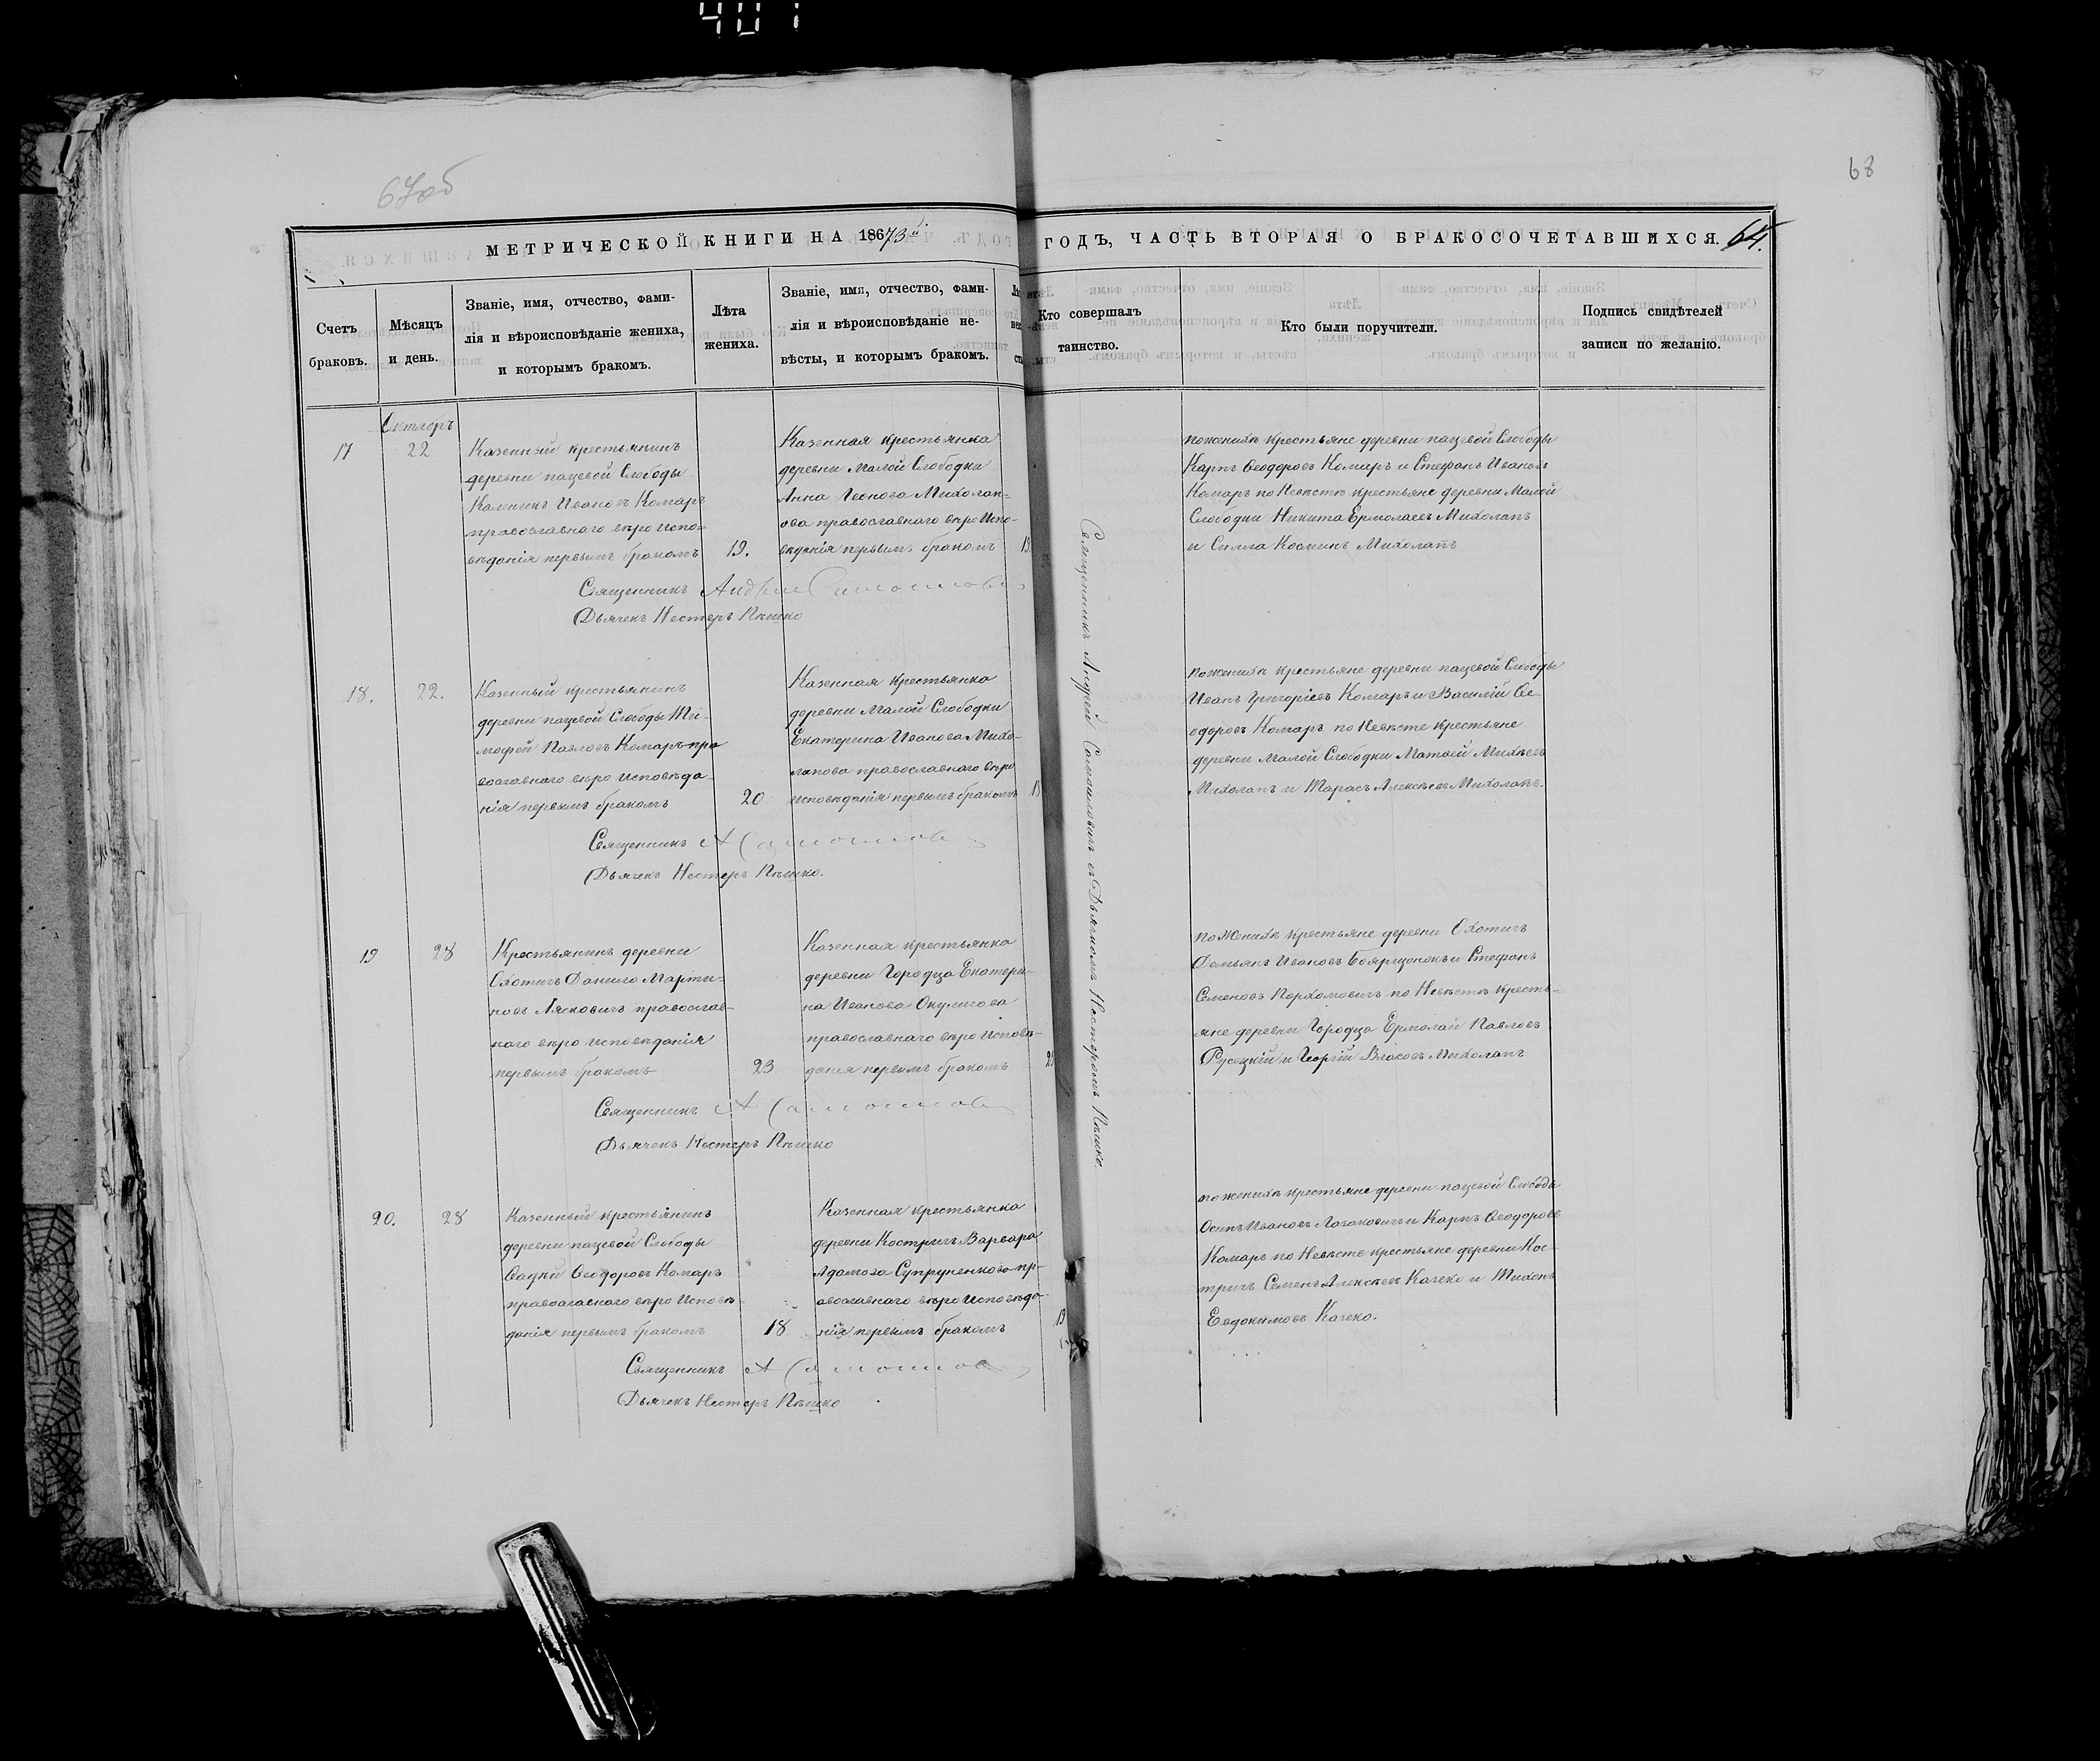 401
67об
68
МЕТРИЧЕСКОЙ КНИГИ НА 1873й
ГОДЪ, ЧАСТЬ ВТОРАЯ О БРАКОСОЧЕТАВШИХСЯ. 64.
Счетъ
браковъ.
Мѣсяцъ
и день.
Званіе, имя, отчество, фами-
лія и вѣроисповѣданіе жениха,
и которымъ бракомъ.
Лѣта
жениха.
Званіе, имя, отчество, фами-
лія и вѣроисповѣданіе не-
вѣсты, и которымъ бракомъ.
Кто совершалъ
таинство.
Кто были поручители.
Подпись свидѣтелей
записи по желанію.
17
Октябрь
22
Казенный крестьянинъ
деревни пацевой Слободы
Каленикъ Ивановъ Комаръ
православнаго вѣро испо-
вѣданія первымъ бракомъ
19.
Казенная крестьянка
деревни Малой Слободки
Анна Леонова Михолап-
ова православнаго вѣро Испо-
вѣданія первымъ бракомъ
19.
Священникъ Андрей
Дьячекъ Нестеръ Пѣшко
Священникъ Андрей съ Дьячкомъ Нестеромъ Пѣшко.
по женихѣ крестьяне деревни пацевой Слободы
Карпъ Ѳеодоровъ Комаръ и Стефанъ Ивановъ
Комаръ по Невѣстѣ крестьяне деревни Малой
Слободки Никита Ермолаевъ Михолапъ
и Силла Косминъ Михолапъ
18.
22.
Казенный крестьянинъ
деревни пацевой Слободы Ти-
мофей Павловъ Комаръ пра
вославнаго вѣро исповѣда-
нія первымъ бракомъ
20
Казенная крестьянка
деревни Малой Слободки
Екатерина Иванова Михо-
лапова православнаго вѣро
исповѣданія первымъ бракомъ
18
Священникъ А
Дьячекъ Нестеръ Пѣшко.
по женихѣ крестьяне деревни пацевой Слободы
Иванъ Григоріевъ Комаръ и Василій Ѳе-
одоровъ Комаръ по Невѣсте крестьяне
деревни Малой Слободки Матвей Михѣевъ
Михолапъ и Тарасъ Алексѣевъ Михолапъ.
19
28
Крестьянинъ деревни
Охотичъ Данило Марти-
новъ Лясковичъ православ-
наго вѣро исповѣданія
первымъ бракомъ
23
Казенная крестьянка
деревни Городца Екатери-
на Иванова Окулигова
православнаго вѣро Исповѣ-
данія первымъ бракомъ
Священникъ А
Дьячекъ Нестеръ Пѣшко
по Женихѣ крестьяне деревни Охотичъ
Демьянъ Ивановъ Бояризонокъ и Стефанъ
Семеновъ Пархомовичъ по Невѣстѣ кресть-
яне деревни Городца Ермолай Павловъ
Русецкій и Георгій Власовъ Михолапъ
20.
28
Казенный крестьянинъ
деревни пацевой Слободы
Ѳадей Ѳеодоровъ Комаръ
православнаго вѣро Исповѣ-
данія первымъ бракомъ
18
Казенная крестьянка
деревни Костричъ Варвара
Адамова Супруненкова пр-
авославнаго вѣро исповѣда-
нія первымъ бракомъ
19
Священникъ А
Дьячекъ Нестеръ Пѣшко
по женихѣ крестьяне деревни пацевой Слободы
Осипъ Ивановъ Лазаковичъ и Карпъ Ѳеодоровъ
Комаръ по Невѣсте крестьяне деревни Кос-
тричъ Семенъ Алексѣевъ Качеко и Тихонъ
Евдокимовъ Качеко.